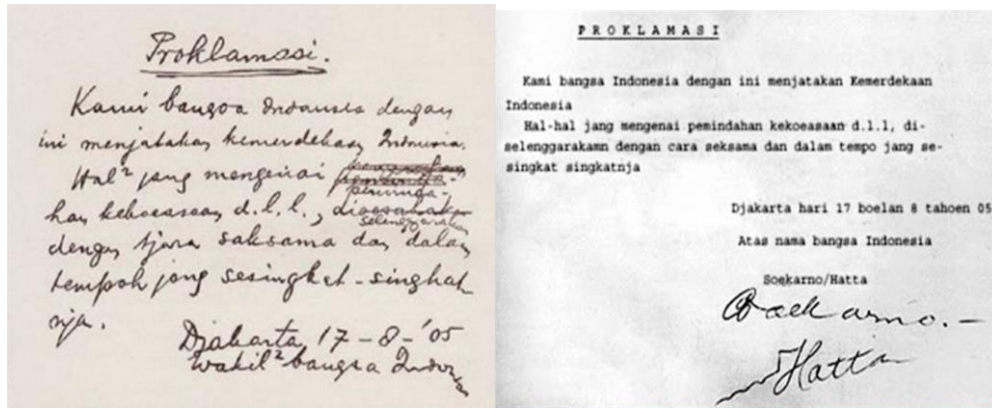 Proklamasi.
Kami bangsa Indonesia dengan
ini menjatakan kemerdekaan Indonesia.
Hal² jang mengenai
peminda-
han kekoeasaan d.l.l.,
diselenggarakan
dengan tjara saksama dan dalam
tempoh jang sesingkat-singkat
nja.
Djakarta 17 - 8 - '05
Wakil² bangsa Indonesia
PROKLAMASI
Kami bangsa Indonesia dengan ini menjatakan Kemerdekaan
Indonesia
Hal-hal jang mengenai pemindahan kekoeasaan d.l.l, di-
selenggarakamn dengan cara seksama dan dalam tempo jang se-
singkat singkatnja
Djakarta hari 17 boelan 8 tahoen 05
Atas nama bangsa Indonesia
Soekarno/Hatta
Soekarno.-
Hatta